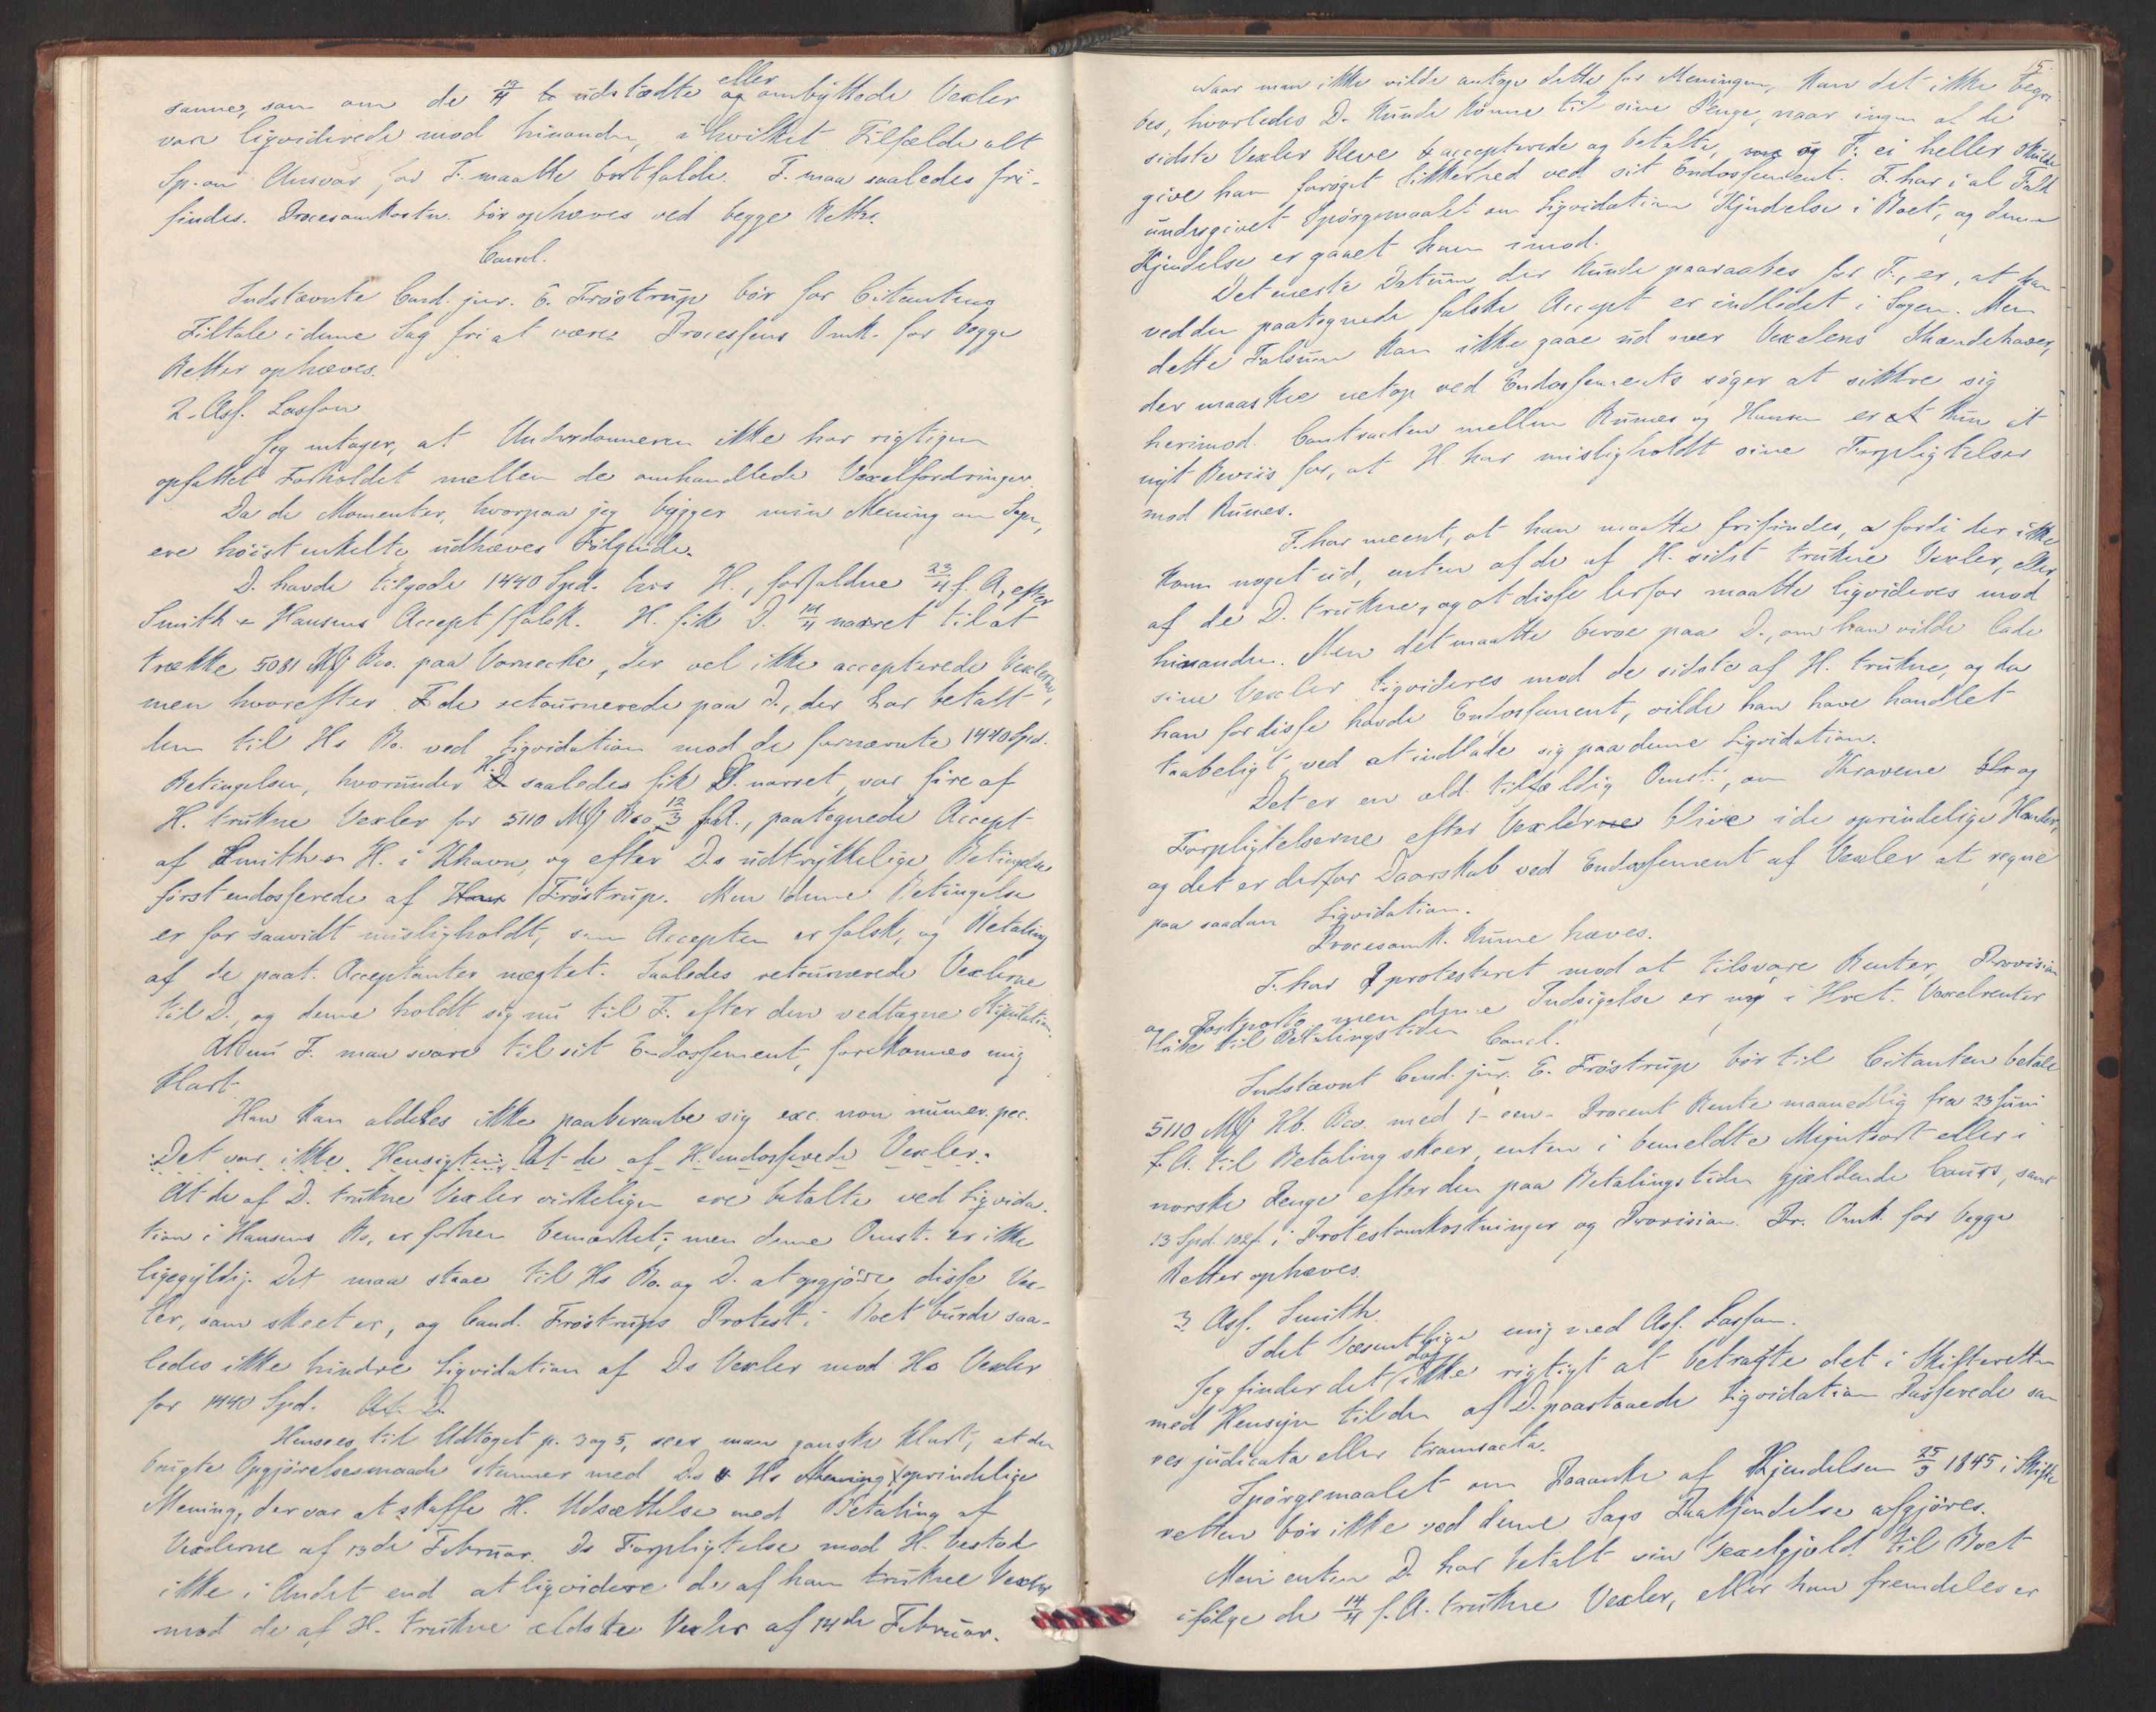 samme, som om de 19/4 udstædte eller ombyttede Vexler
vare ligviderede mod hinanden, i hvilket Tilfælde alt
Sp. om Ansvar for F. maatte bortfalde. F. maa saaledes fri-
findes. Procesomkostn. bör ophæves ved begge Retter.
Concl.
Indstævnte Cand. jur. E. Fröstrup bör for Citantens
Tiltale i denne Sag fri at være. Processens Omk. for begge
Retter ophæves.
2. Ass. Lasson
Jeg antager, at Underdommeren ikke har rigtigen
opfattet Forholdet mellem de omhandlede Vexelfordringer.
Da de Momenter, hvorpaa jeg bygger min Mening om Sagen,
ere höist enkelte udhæves Fölgende.
D. havde tilgode 1440 Spd. hos H., forfaldne 23/4 f. A., efter
Smith & Hansens Accept /falsk. H. fik D. 14/4 narret til at
trække 5081 Mk Bco. paa Vornecke, der vel ikke accepterede Vexlerne,
men hvorefter de retournerede paa D., der har betalt
dem til Hs Bo. ved Ligvidation mod de fornævnte 1440 Spd.
Betingelsen, hvorunder H. saaledes fik D. narret, var fire af
H. trukne Vexler for 5110 Mk Bco 12/3 f.A., paategnede Accept
af Smith & H. i Khavn, og efter Ds udtrykkelige Betingelse
först endosserede af Fröstrup. Men denne Betingelse
er for saavidt misligholdt, som Accepten er falsk, og Betaling
af de paat. Acceptanter nægtet. Saaledes retournerede Vexlerne
til D., og denne holdt sig nu til F. efter den vedtagne Stipulation.
At nu F. maa svare til sit Endossement, forekommes mig
klart.
Han kan aldeles ikke paaberaabe sig exc. non numer. pec.
Det var ikke Hensigten, at de af H. endosserede Vexler.
At de af D. trukne Vexler virkeligen ere betalte ved Ligvida-
tion i Hansens Bo, er forhen bemærket; men denne Omst. er ikke
ligegyldig. Det maa staae til Hs Bo. og D. at opgjöre disse Vex-
ler, som skeet er, og Cand. Fröstrups Protest i Boet burde saa-
ledes ikke hindre Ligvidation af Ds Vexler mod Hs Vexler
for 1440 Spd.
Hensees til Udtoget p. 3 og 5, sees man ganske klart, at den
brugte Opgjörelsesmaade stemmer med Ds & Hs oprindelige
Mening, der var at skaffe H. Udsættelse med Betaling af
Vexlerne af 13de Februar. Ds Forpligtelse mod H. bestod
ikke i Andet end at ligvidere de af ham trukne Vexler
mod de af H. trukne ældste Vexler af 14de Februar.
15.
Naar man ikke vilde antage dette for Meningen, kan det ikke begri-
bes, hvorledes D. kunde komme til sine Penge, naar ingen af de
sidste Vexler bleve accepterede og betalte, og F. ei heller skulde
give ham foröget Sikkerhed ved sit Endossement. F. har i al Fald
undergivet Spörgsmaalet om Ligvidation Kjendelse i Boet, og denne
Kjendelse er gaaet ham imod.
Det eneste Datum, der kunde paaraabes for F., er, at han
ved den paategnede falske Accept er indledet i Sagen. Men
dette Falsum kan ikke gaae ud over Vexelens Ihændehaver,
der maaskee netop ved Endossements söger at sikkre sig
herimod. Contracten mellem Rumes og Hansen er kun et
nyt Beviis for, at H har misligholdt sine Forpligtelser
mod Rumes.
F. har meent, at han maatte frifindes, fordi der ikke
kom noget ud, enten af de af H. sidst trukne Vexler, eller
af de D. trukne, og at disse derfor maatte ligvideres mod
hinanden. Men det maatte beroe paa D., om han vilde lade
sine Vexler ligvideres mod de sidste af H. trukne, og da
han for disse havde Endossement, vilde han have handlet
taabeligt ved at indlade sig paa denne Ligvidation.
Det er en ald. tilfældig Omst., om Kravene og
Forpligtelserne efter Vexler blive i de oprindelige Hænder,
og det er derfor Daarskab ved Endossement af Vexler at regne
paa saadan Ligvidation.
Procesomk. kunne hæves.
F. har protesteret mod at tilsvare Renter, Provision
og Postporto, men denne Indsigelse er ny i Hret. Vexelrenter
til Betalingstiden
Concl.
Indstævnt Cand. jur. E. Fröstrup bör til Citanten betale
5110 Mk Hb. Bco. med 1 - een - Procent Rente maanedlig fra 23 Juni
f. A. til Betaling skeer, enten i bemeldte Myntsort eller i
norske Penge efter den paa Betalingstiden gjældende Cours, samt
13 Spd. 102 s. i Protestomkostninger og Provision. Pr. Omk. for begge
Retter ophæves.
3. Ass. Smith.
I det Væsentlige enig med Ass. Lasson.
Jeg finder det dog ikke rigtigt at betragte det i Skifteretten
med Hensyn til den af D. paastaaede Ligvidation Passerede som
res judicata eller transacta.
Spörgsmaalet om Paaanke af Kjendelsen 25/9 1845 i Skifte-
retten bör ikke ved denne Sags Paakjendelse afgjöres.
Men enten D. har betalt sin Vexelgjeld til Boet
ifölge de 14/4 f. A. trukne Vexler, eller han fremdeles er